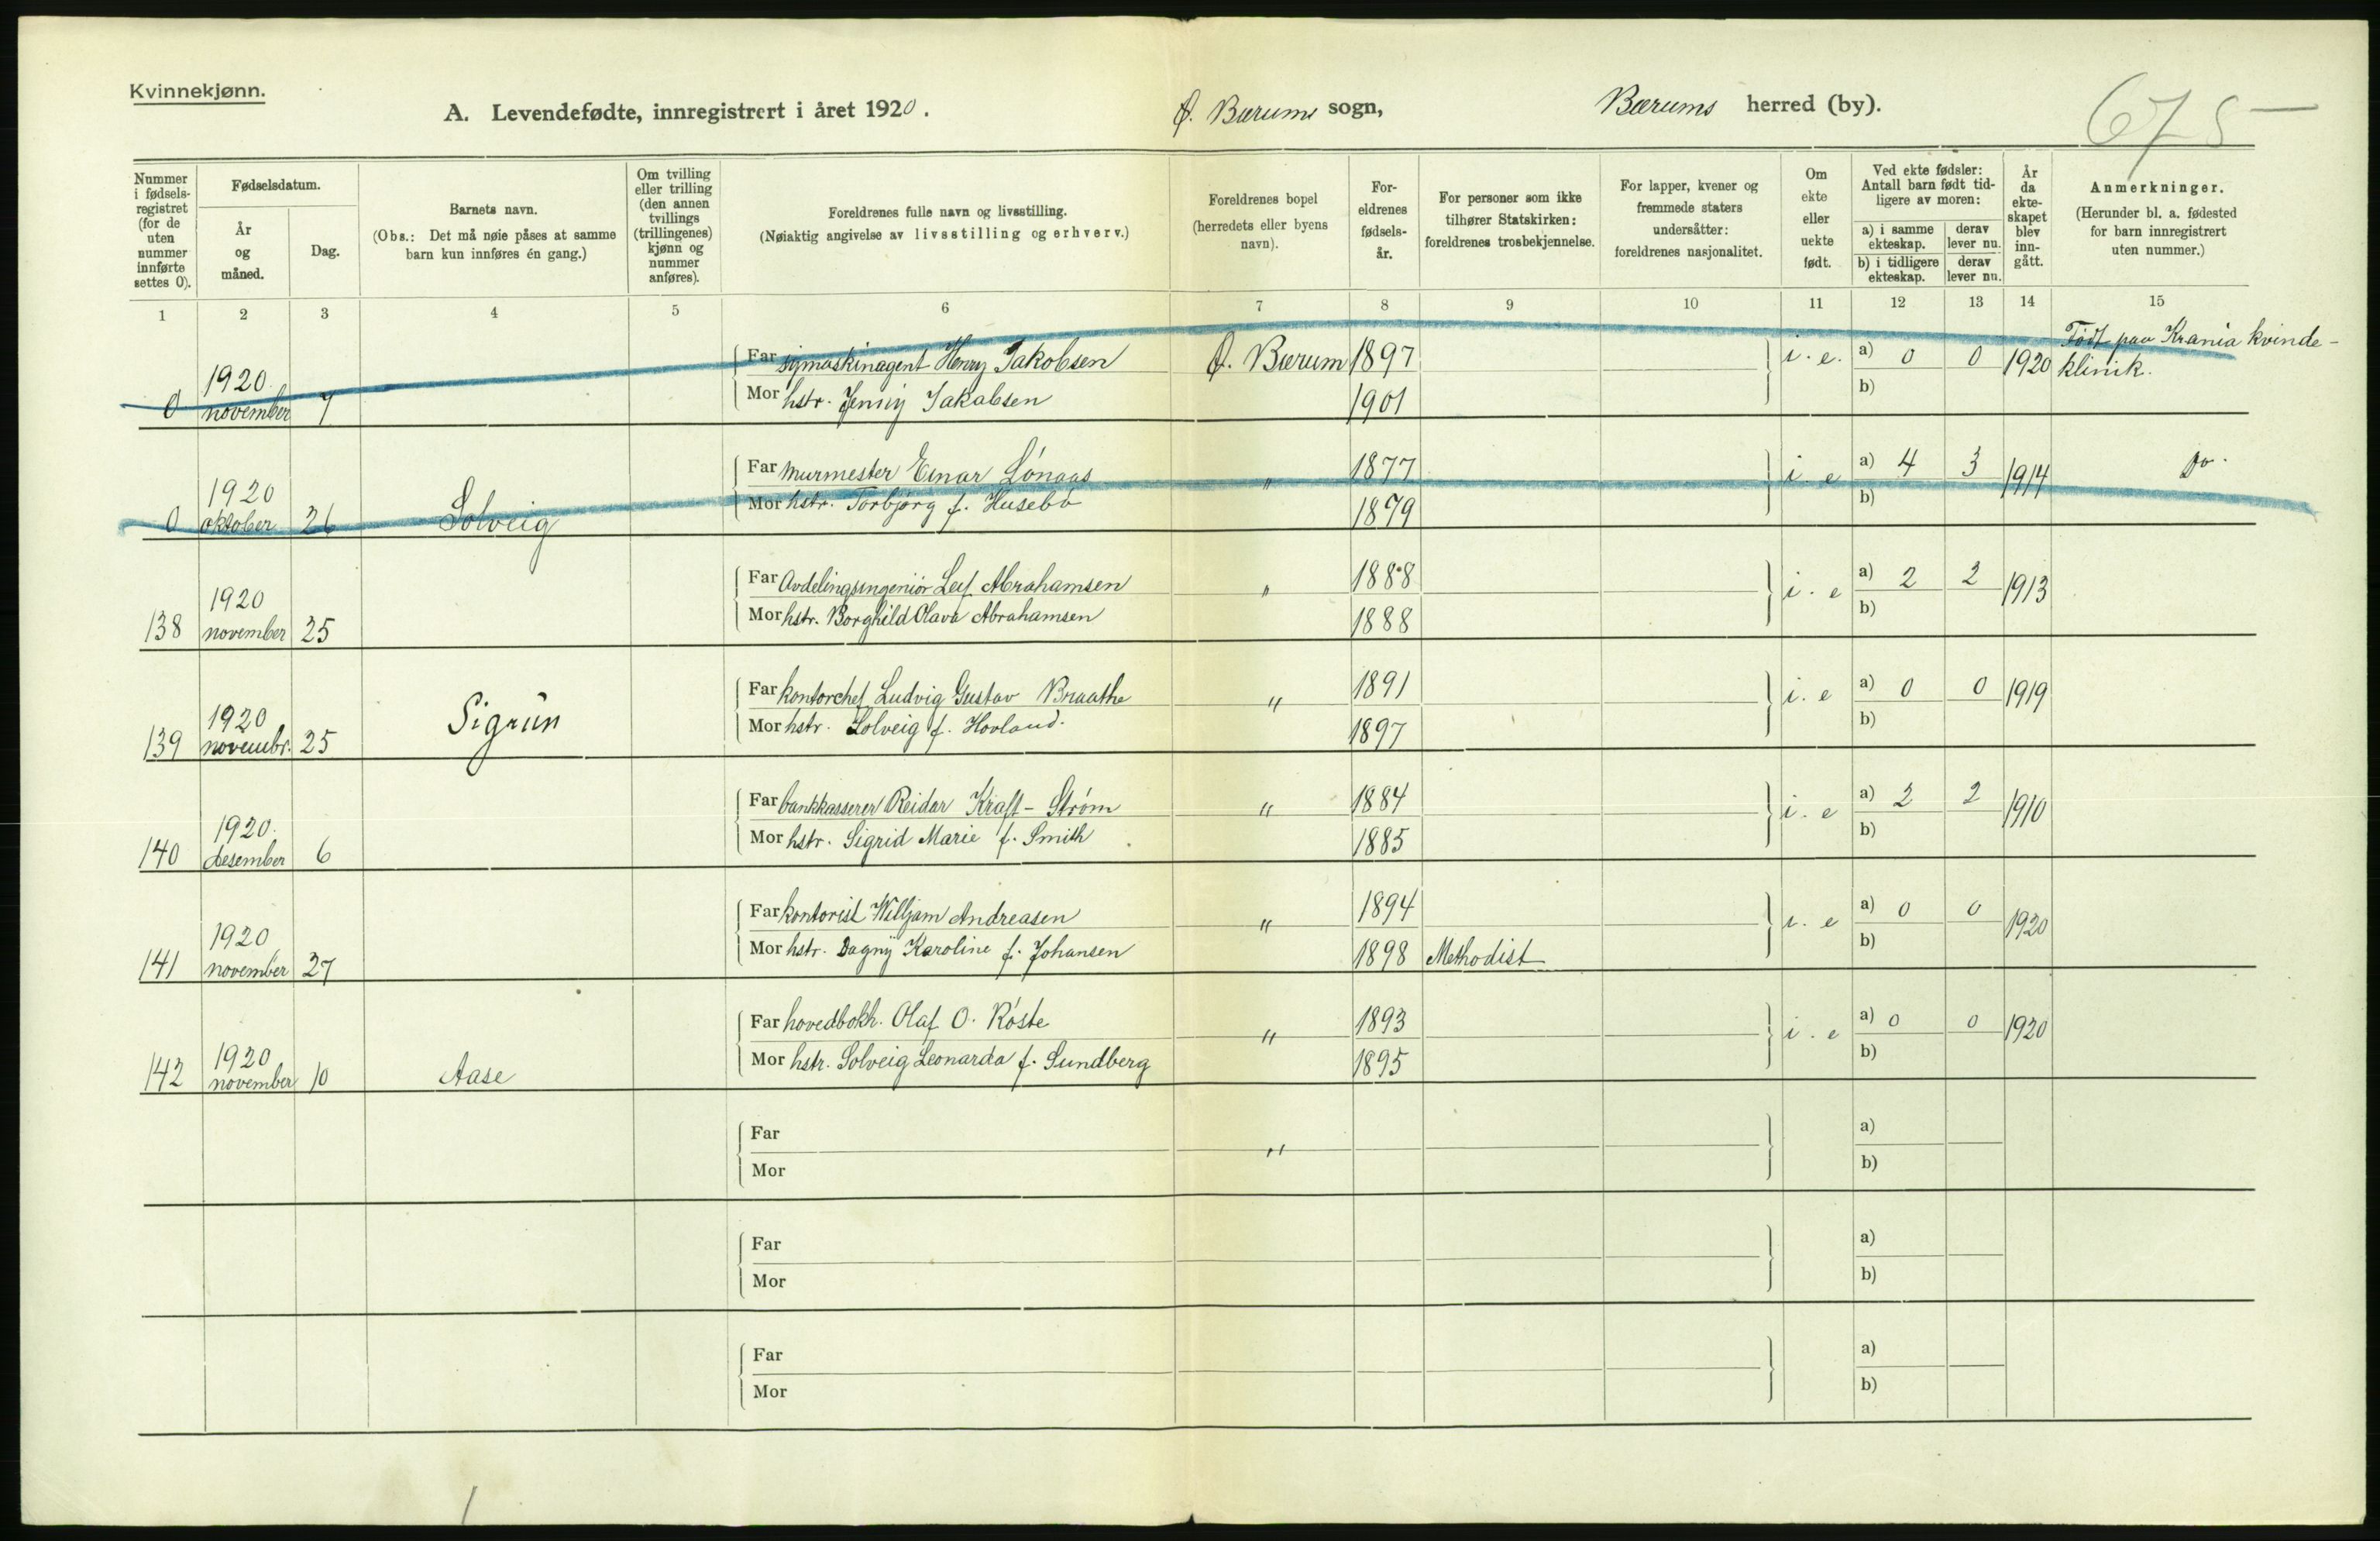 Kvinnekjønn.
A. Levendefødte, innregistrert i året 1920. Ø. Bærums sogn, Bærums herred (by).
675
Nummer i fødselsregistret (for de uten nummer innførte settes 0).
Fødselsdatum.
År og måned.
Dag.
Barnets navn.
(Obs.: Det må nøie påses at samme barn kun innføres én gang.)
Om tvilling eller trilling (den annen tvillings (trillingenes) kjønn og nummer anføres).
Foreldrenes fulle navn og livsstilling.
(Nøiaktig angivelse av livsstilling og erhverv.)
Foreldrenes bopel (herredets eller byens navn).
Foreldrenes fødselsår.
For personer som ikke tilhører Statskirken: foreldrenes trosbekjennelse.
For lapper, kvener og fremmede staters undersåtter: foreldrenes nasjonalitet.
Om ekte eller uekte født.
Ved ekte fødsler: Antall barn født tidligere av moren:
a) i samme ekteskap.
derav lever nu.
b) i tidligere ekteskap.
derav lever nu.
År da ekteskapet blev inngått.
Anmerkninger.
(Herunder bl. a. fødested for barn innregistrert uten nummer.)
1 2 3 4 5 6 7 8 9 10 11 12 13 14 15
0 1920 november 7 Far symaskinagent Henry Jakobsen Ø. Bærum 1897 i. e. a) 0 0 1920 Født paa Krania kvinde-klinik.
Mor hstr. Jenny Jakobsen 1901 b)
0 1920 oktober 26 Solveig Far murmester Einar Lønaas " 1877 i. e a) 4 3 1914 Do.
Mor hstr. Torbjørg f. Husebø 1879 b)
138 1920 november 25 Far Avdelingsingeniør Leif Abrahamsen " 1888 i. e a) 2 2 1913
Mor hstr. Borghild Olava Abrahamsen 1888 b)
139 1920 novembr. 25 Sigrun Far kontorchef Ludvig Gustav Braathe " 1891 i. e a) 0 0 1919
Mor hstr. Solveig f. Hovland. 1897 b)
140 1920. desember 6 Far bankkasserer Reidar Kraft-Strøm " 1884 i. e a) 2 2 1910
Mor hstr. Sigrid Marie f. Smith 1885 b)
141 1920 november 27 Far kontorist Willjam Andreasen " 1894 i. e a) 0 0 1920
Mor hstr. Dagny Karoline f. Johansen 1898 Methodist b)
142 1920 november 10 Aase Far hovedbokh. Olaf O. Røste " 1893 i. e a) 0 0 1920
Mor hstr. Solveig Leonarda f. Sundberg 1895 b)
Far " a)
Mor b)
Far a)
Mor b)
Far a)
Mor b)